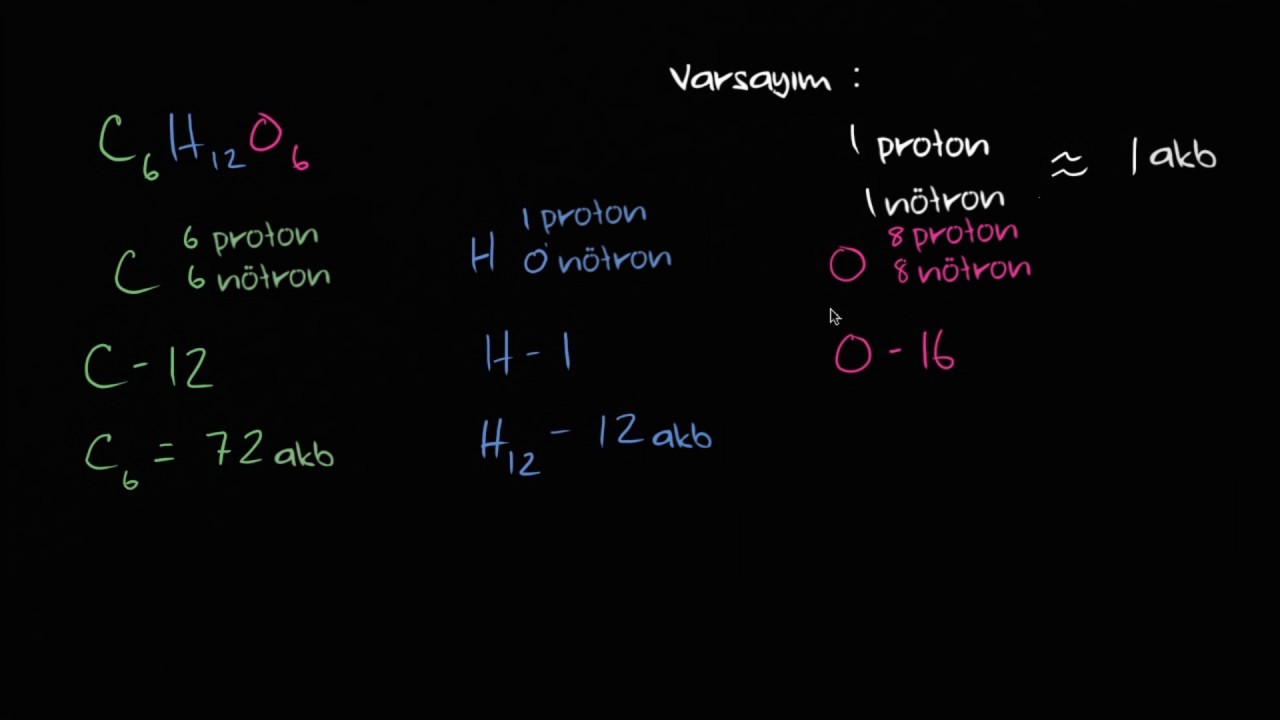 Varsayım :
C6H12O6
1 proton
1 nötron
≈ 1 akb
C
6 proton
6 nötron
H
1 proton
0 nötron
O
8 proton
8 nötron
C - 12
H - 1
O - 16
C6 = 72 akb
H12 - 12 akb